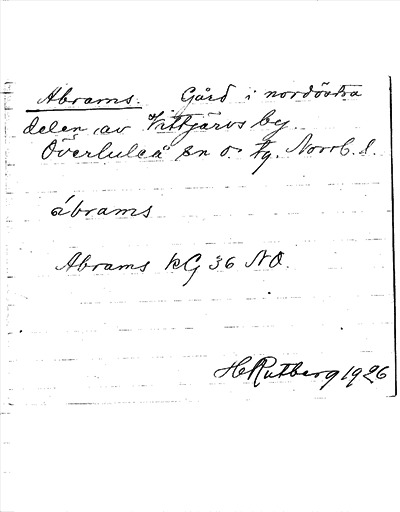 Abrams. Gård i nordöstra
delen av Vittjärvs by.
Överluleå sn o. tg. Norrb. l.
ábrams
Abrams kG 36 NO.
H Rutberg 1926